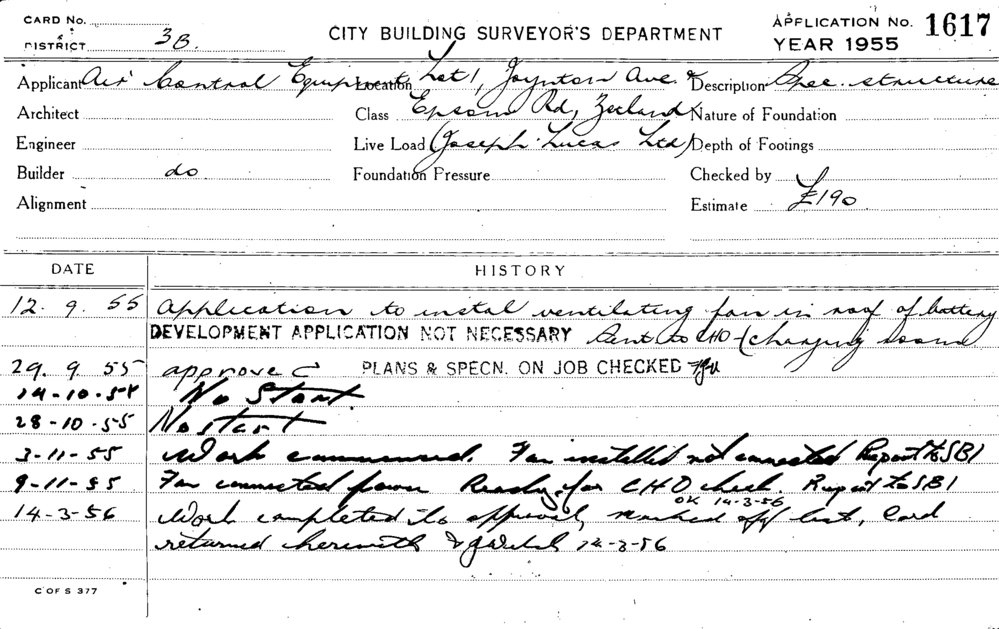 CARD No.
DISTRICT 3B.
CITY BUILDING SURVEYOR'S DEPARTMENT
APPLICATION No. 1617
YEAR 1955
Applicant Air Control Equipment Location Lot 1, Joynton Ave & Description Spec. structure
Architect Class Epsom Rd, Zetland Nature of Foundation
Engineer Live Load (Joseph Lucas Ltd) Depth of Footings
Builder do Foundation Pressure Checked by
Alignment Estimate £190
DATE HISTORY
12. 9. 55 Application to instal ventilating fan in roof of battery
DEVELOPMENT APPLICATION NOT NECESSARY Sent to CHO (charging room
29. 9. 55 approved PLANS & SPECN. ON JOB CHECKED
14-10-55 No Start
28-10-55 No start
3-11-55 Work commenced. Fan installed not connected Report to SBI
9-11-55 Fan connected power Ready for CHO check Report to SBI
OK 14-3-56
14-3-56 Work completed to approval, marked off list, Card
returned herewith 14-3-56
C OF S 377